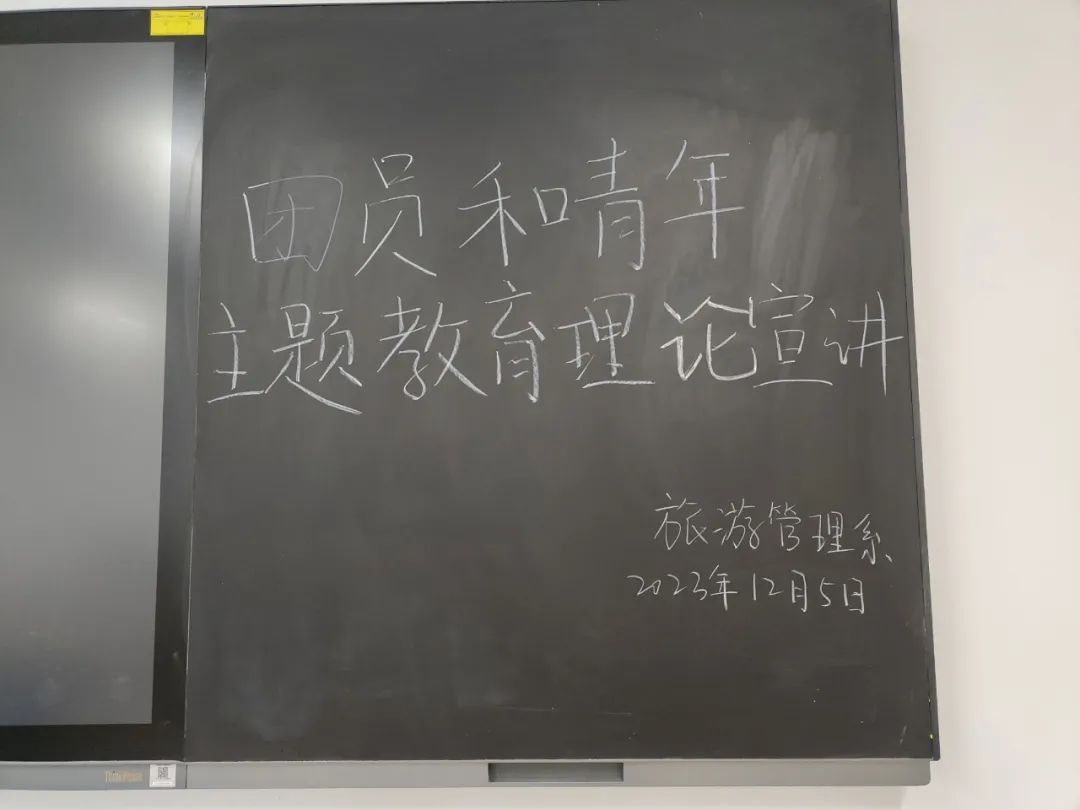 团员和青年
主题教育理论宣讲
旅游管理系
2023年12月5日